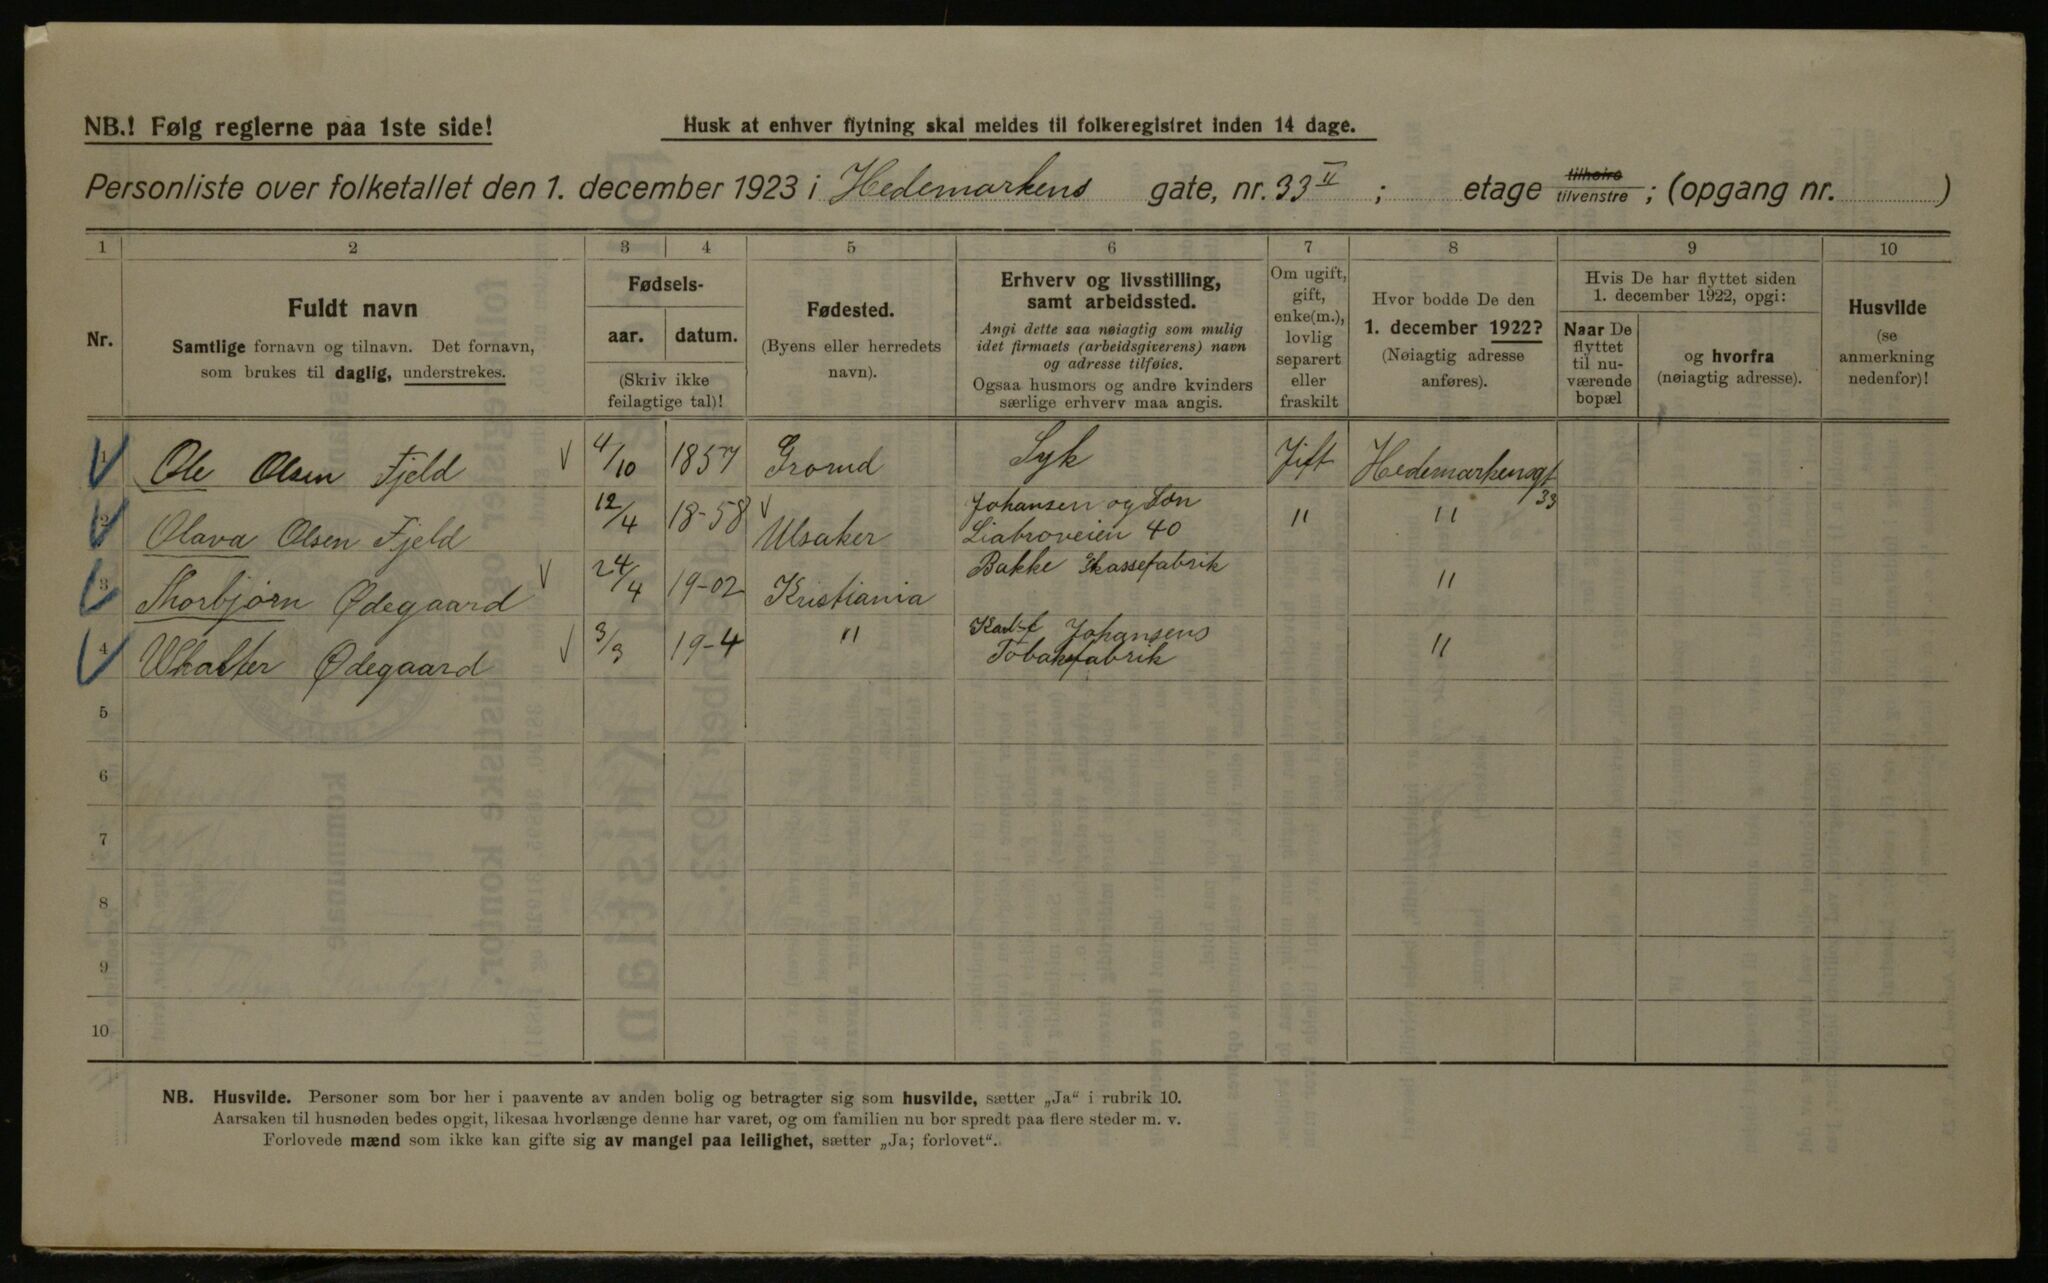 NB.! Følg reglerne paa 1ste side!
Husk at enhver flytning skal meldes til folkeregistret inden 14 dage.
Personliste over folketallet den 1. december 1923 i Hedemarkens gate, nr. 33 II ; etage tilhøire tilvenstre ; (opgang nr. )
1 2 3 4 5 6 7 8 9 10
Nr.
Fuldt navn
Samtlige fornavn og tilnavn. Det fornavn,
som brukes til daglig, understrekes.
Fødsels-
aar. datum.
(Skriv ikke
feilagtige tal)!
Fødested.
(Byens eller herredets
navn).
Erhverv og livsstilling,
samt arbeidssted.
Angi dette saa nøiagtig som mulig
idet firmaets (arbeidsgiverens) navn
og adresse tilføies.
Ogsaa husmors og andre kvinders
særlige erhverv maa angis.
Om ugift,
gift,
enke(m.),
lovlig
separert
eller
fraskilt
Hvor bodde De den
1. december 1922?
(Nøiagtig adresse
anføres).
Hvis De har flyttet siden
1. december 1922, opgi:
Naar De
flyttet
til nu-
værende
bopæl
og hvorfra
(nøiagtig adresse).
Husvilde
(se
anmerkning
nedenfor)!
1 Ole Olsen Fjeld 4/10 1857 Grorud Syk Gift Hedemarkensgt 33
2 Olava Olsen Fjeld 12/4 18-58 Ulsaker Johansen og Søn
Liabroveien 40 " "
3 Thorbjørn Ødegaard 24/4 19-02 Kristiania Bakke Kassefabrik "
4 Whalter Ødegaard 3/3 19-4 " Johansens
Tobakfabrik "
5
6
7
8
9
10
NB. Husvilde. Personer som bor her i paavente av anden bolig og betragter sig som husvilde, sætter „Ja“ i rubrik 10.
Aarsaken til husnøden bedes opgit, likesaa hvorlænge denne har varet, og om familien nu bor spredt paa flere steder m. v.
Forlovede mænd som ikke kan gifte sig av mangel paa leilighet, sætter „Ja; forlovet“.